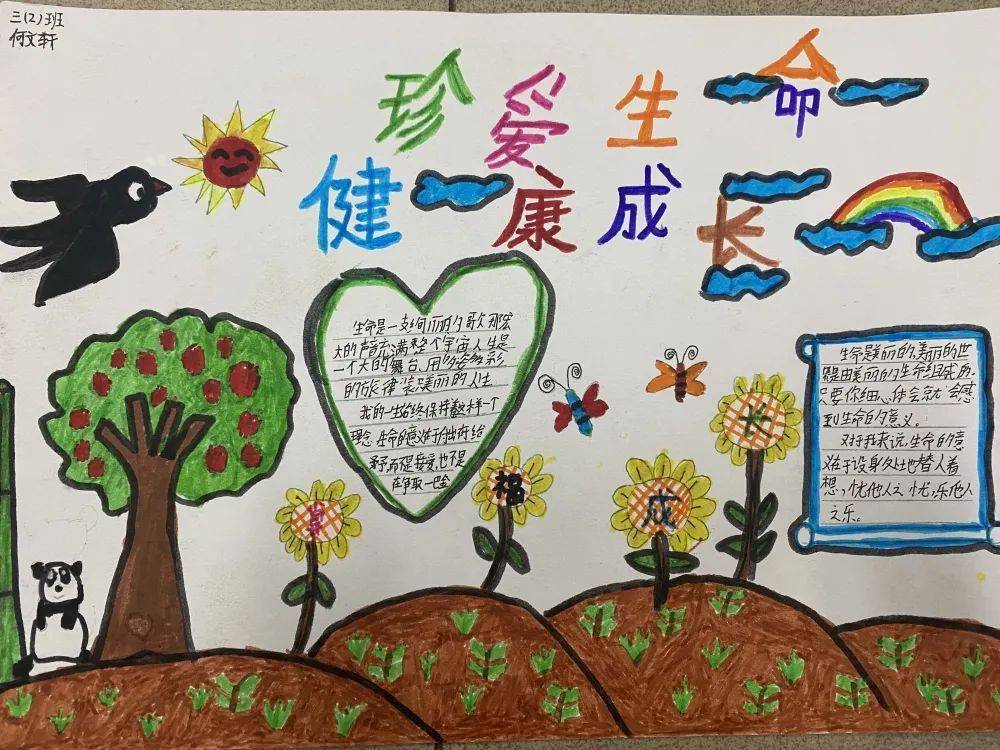 三(2)班
何文轩
珍爱生命
健康成长
生命是一支绚丽的歌那宏
大的声音充满整个宇宙人生是
一个大的舞台,用多姿多彩
的旋律装美丽的人生
我的一生始终保持着这样一个
理念.生命的意义在于付出.在于给
予,而不是接受,也不是
在争取一些
幸
福
成
长
生命是美丽的,美丽的世
界是由美丽的生命组成的.
只要你细心体会就会感
到生命的意义。
对于我来说,生命的意
义在于设身处地替人着
想,忧他人之忧,乐他人
之乐。